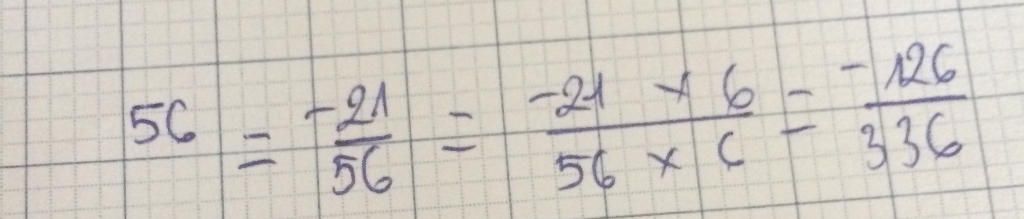 56 = -21/56 = -21 × 6/56 × 6 = -126/336